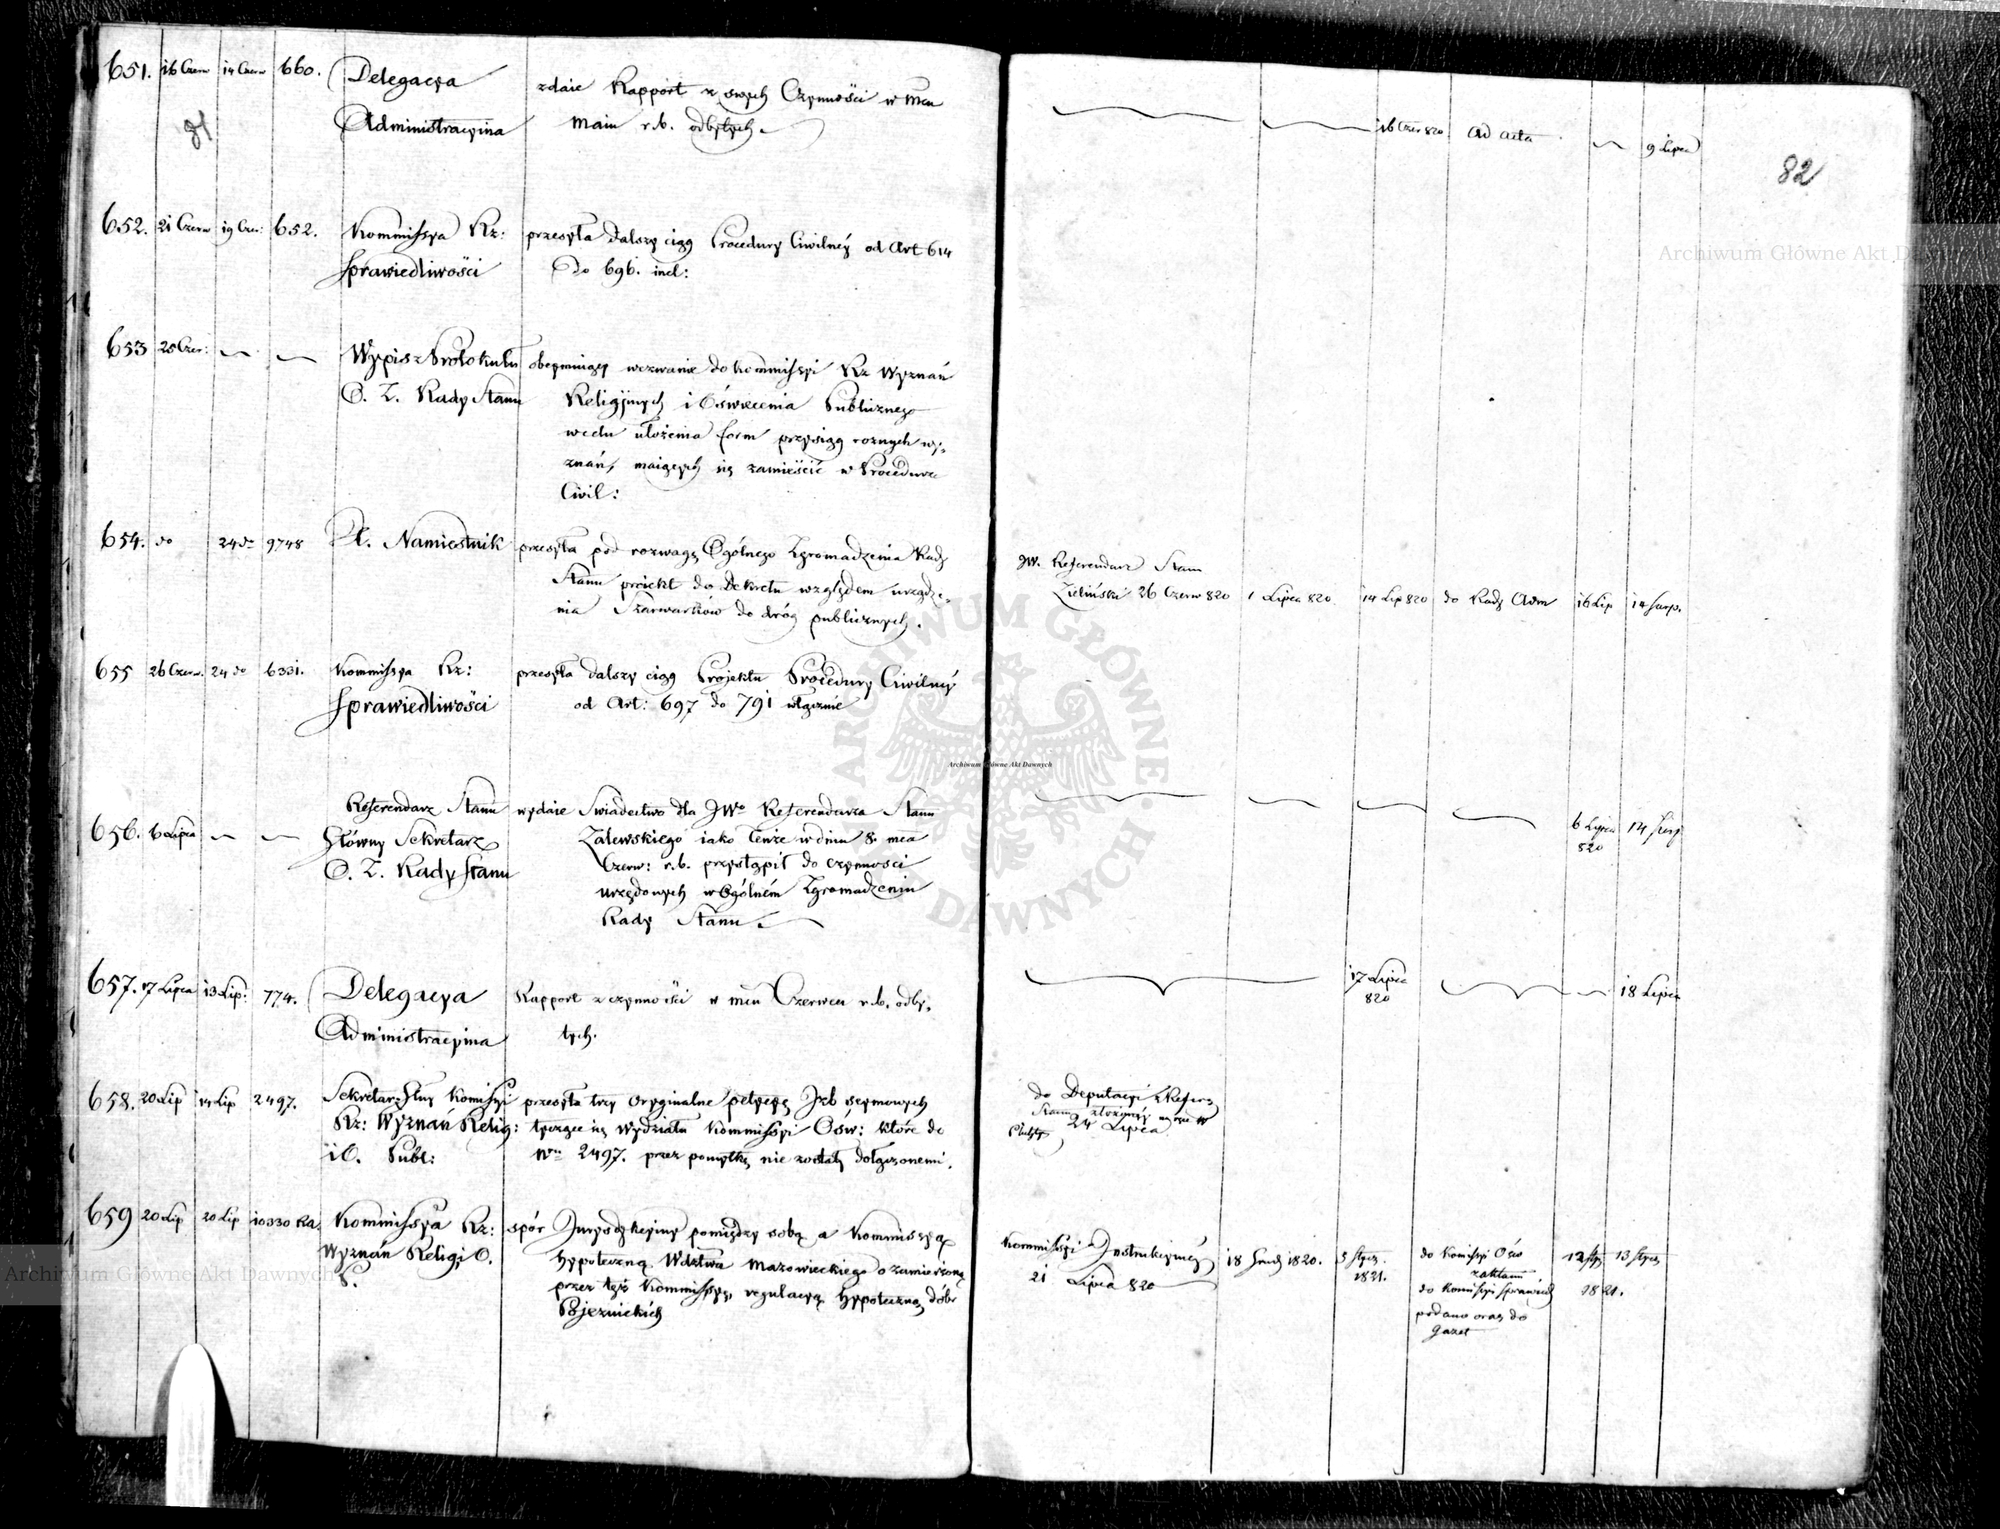 651. 16 Czerw 14 Czerw 660. Delegacya zdaie Rapport z swych Czynności w mcu
Administracyina Maiu r.b. odbytych.
16 Czer 820 Ad acta 9 Lipca
81
82
652. 21 Czerw 19 Czer: 652. Kommissya Rz: przesyła dalszy ciąg Procedury Civilnéy od Art 614
Sprawiedliwości do 696. incl:
653 25 Czer: Wypis z Protokułu obeymuiący wezwanie do Kommissyi Rz Wyznań
O. Z. Rady Stanu Religijnych i Oświecenia Publicznego
wcelu ułożenia form przysiąg roznych wy-
znań, maiących się zamieścić w Procedurze
Civil:
654. do 24 do 9748 X. Namiestnik przesyła pod rozwagę Ogólnego Zgromadzenia Rady
Stanu proiekt do Dekretu względem urządze-
nia Szarwarków do dróg publicznych.
JW. Referendarz Stanu
Zieliński 26 Czerw 820 1 Lipca 820 14 Lip 820 do Rady Adm 16 Lip 14 Sierp.
655 26 Czerw. 24 do 6331. Kommissya Rz: przesyła dalszy ciąg Projektu Procedury Civilnéy
Sprawiedliwości od Art: 697 do 791 włącznie
656. 6 Lipca Referendarz Stanu wydaie Swiadectwo dla JWo Referendarza Stanu
Główny Sekretarz Zalewskiego iako tenże w dniu 8. mca
O. Z. Rady Stanu Czerw: r.b. przystąpił do czynności
urzędowych w Ogólném Zgromadzeniu
Rady Stanu.
6 Lipca 14 Sierp
820
657. 17 Lipca 13 Lip: 774. Delegacya Rapport z czynności w mcu Czerwcu r.b. odby-
Administracyina tych.
17 Lipca 18 Lipca
820
658. 20 Lip 14 Lip 2497. Sekretarz Głny Komissyi przesyła trzy Oryginalne petycye Izb seymowych
Rz: Wyznań Relig: tyczące się Wydziału Kommissyi Ośw: które do
i O. Publ: Nru 2497. przez pomyłkę nie zostały dołączonemi.
do Deputacyi
Stanu złożonéy
24 Lipca
659 20 Lip 20 Lip 10330 Kommissya Rz: spór Jurysdykcyiny pomiędzy sobą a Kommissyą
Wyznań Religi O. hypoteczną Wdztwa Mazowieckiego o zamierzoną
P. przez tęż Kommissyę regulacyą hypoteczną dóbr
Pojeznickich
Kommissyi Instrukcyinéy 18 Grud 1820. 5 Stycz. do Komissyi Ośw 12 Sty 13 Stycz
21 Lipca 820 1821. do Komissyi Sprawied 1821.
podano oraz do
Gazet
Archiwum Główne Akt Dawnych
ARCHIWUM GŁÓWNE
AKT DAWNYCH
Archiwum Główne Akt Dawnych
Archiwum Główne Akt Dawnych